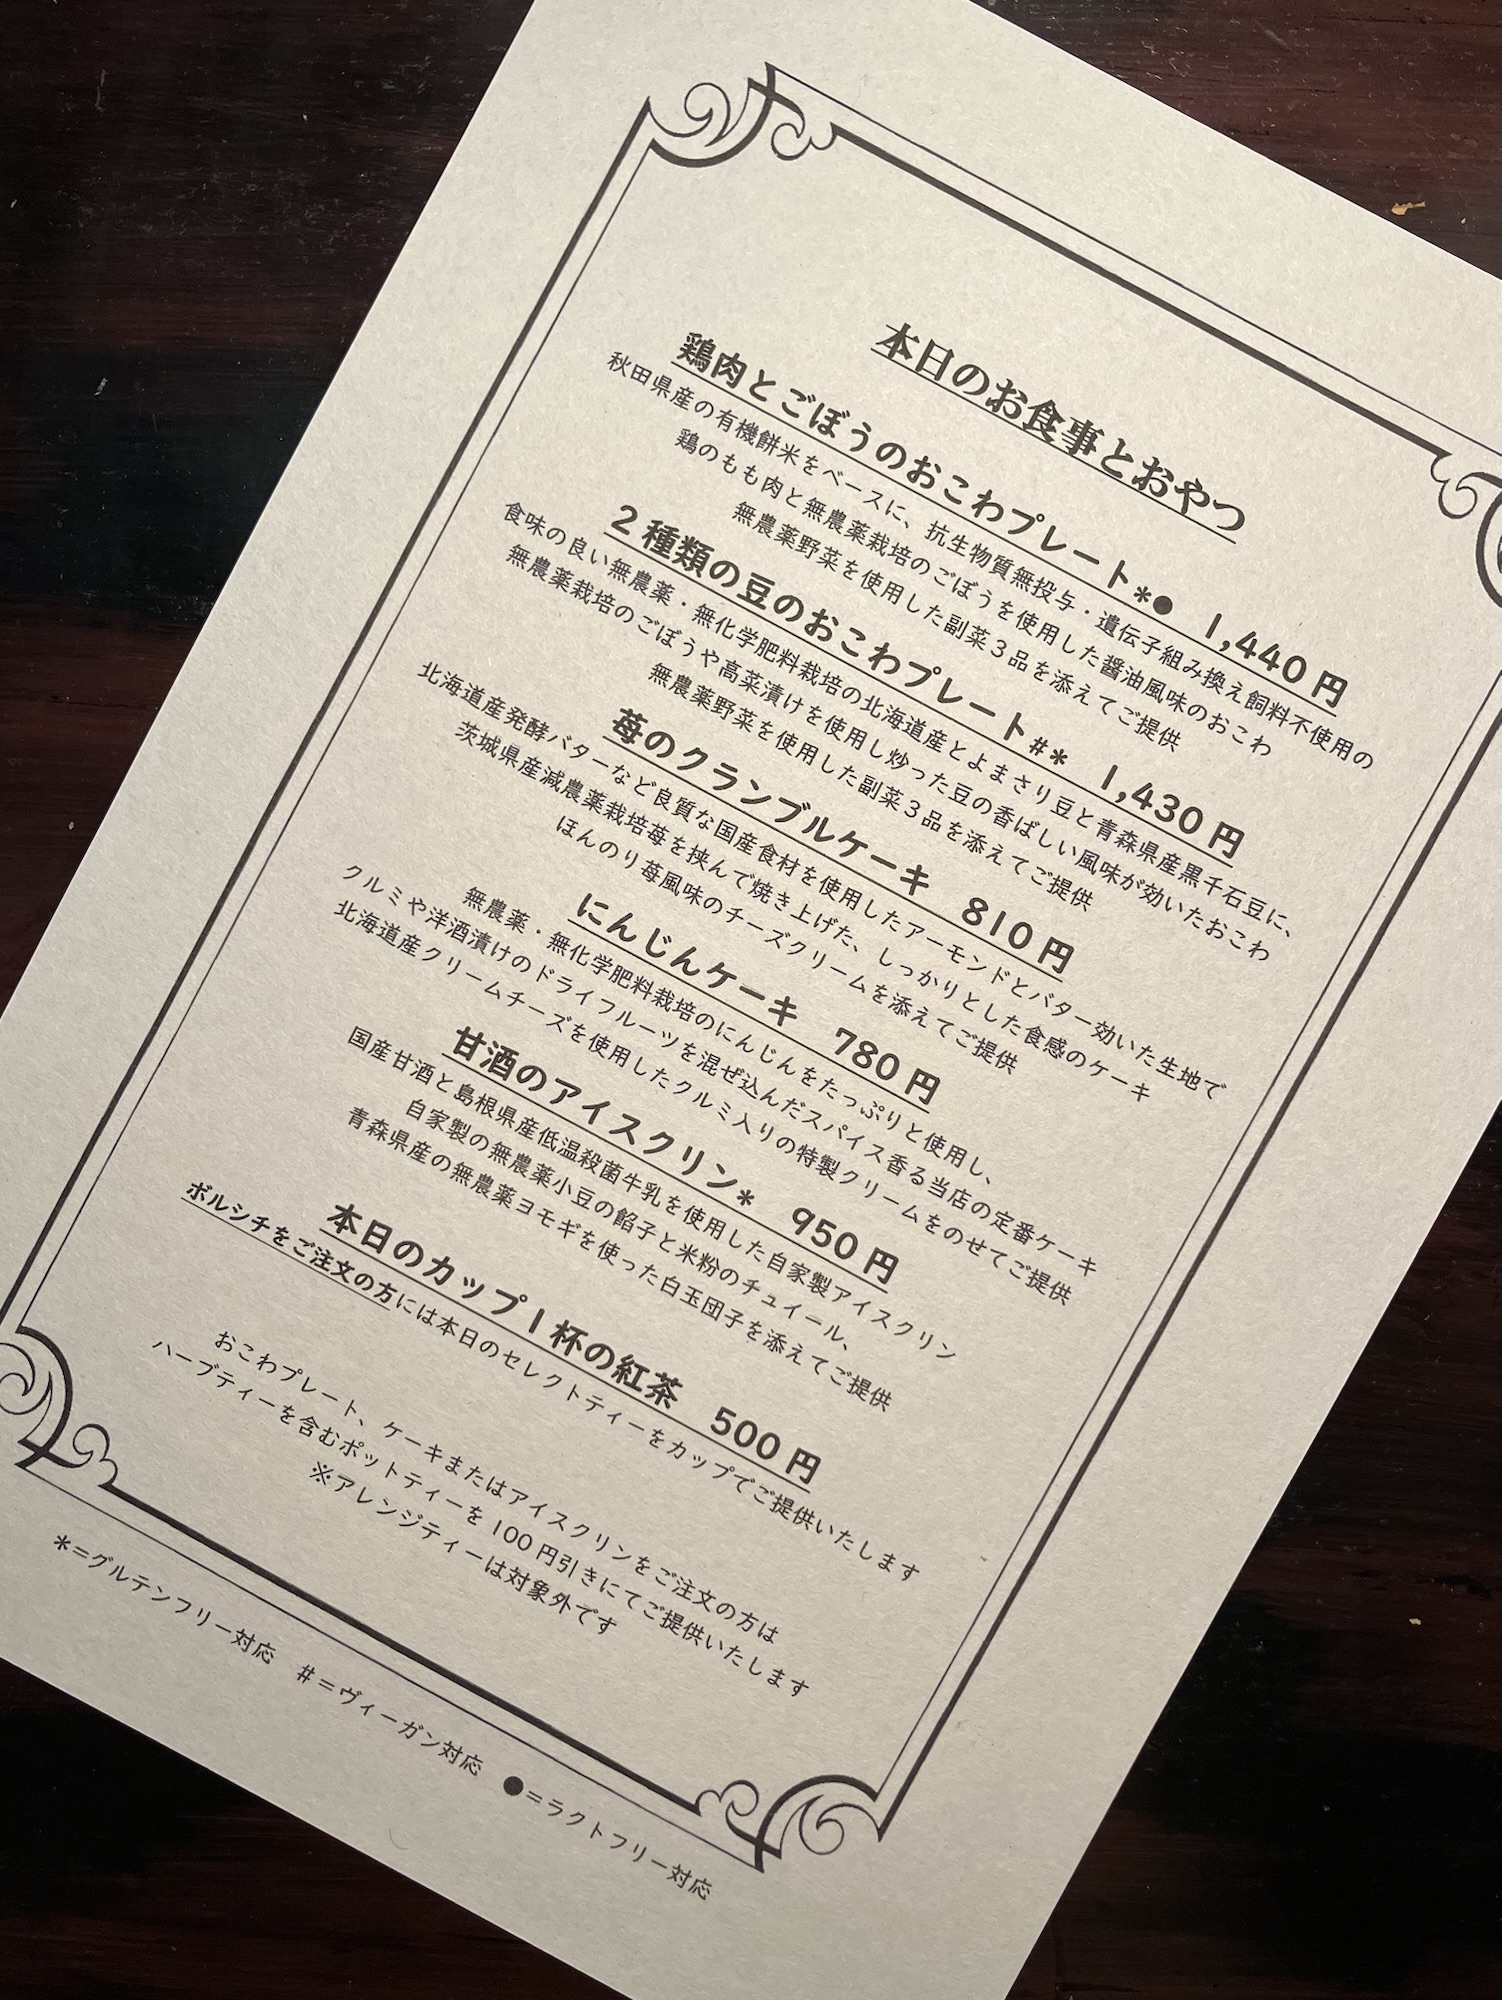 本日のお食事とおやつ
鶏肉とごぼうのおこわプレート*● 1,440円
秋田県産の有機餅米をベースに、抗生物質無投与・遺伝子組み換え飼料不使用の
鶏のもも肉と無農薬栽培のごぼうを使用した醤油風味のおこわ
無農薬野菜を使用した副菜3品を添えてご提供
2種類の豆のおこわプレート#* 1,430円
食味の良い無農薬・無化学肥料栽培の北海道産とよまさり豆と青森県産黒千石豆に、
無農薬栽培のごぼうや高菜漬けを使用し炒った豆の香ばしい風味が効いたおこわ
無農薬野菜を使用した副菜3品を添えてご提供
苺のクランブルケーキ 810円
北海道産発酵バターなど良質な国産食材を使用したアーモンドとバター効いた生地で
茨城県産減農薬栽培苺を挟んで焼き上げた、しっかりとした食感のケーキ
ほんのり苺風味のチーズクリームを添えてご提供
にんじんケーキ 780円
無農薬・無化学肥料栽培のにんじんをたっぷりと使用し、
クルミや洋酒漬けのドライフルーツを混ぜ込んだスパイス香る当店の定番ケーキ
北海道産クリームチーズを使用したクルミ入りの特製クリームをのせてご提供
甘酒のアイスクリン* 950円
国産甘酒と島根県産低温殺菌牛乳を使用した自家製アイスクリン
自家製の無農薬小豆の餡子と米粉のチュイール、
青森県産の無農薬ヨモギを使った白玉団子を添えてご提供
本日のカップ1杯の紅茶 500円
ボルシチをご注文の方には本日のセレクトティーをカップでご提供いたします
おこわプレート、ケーキまたはアイスクリンをご注文の方は
ハーブティーを含むポットティーを100円引きにてご提供いたします
※アレンジティーは対象外です
*=グルテンフリー対応 #=ヴィーガン対応 ●=ラクトフリー対応